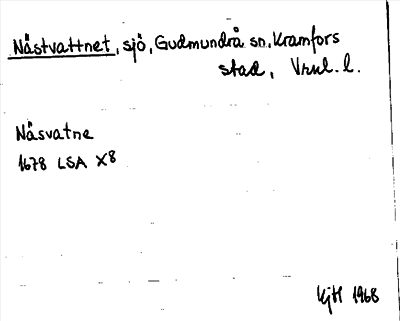 Nästvattnet, sjö, Gudmundrå sn, Kramfors
stad, Vnrl. l.
Näsvatne
1678 LSA X8
KjH 1968